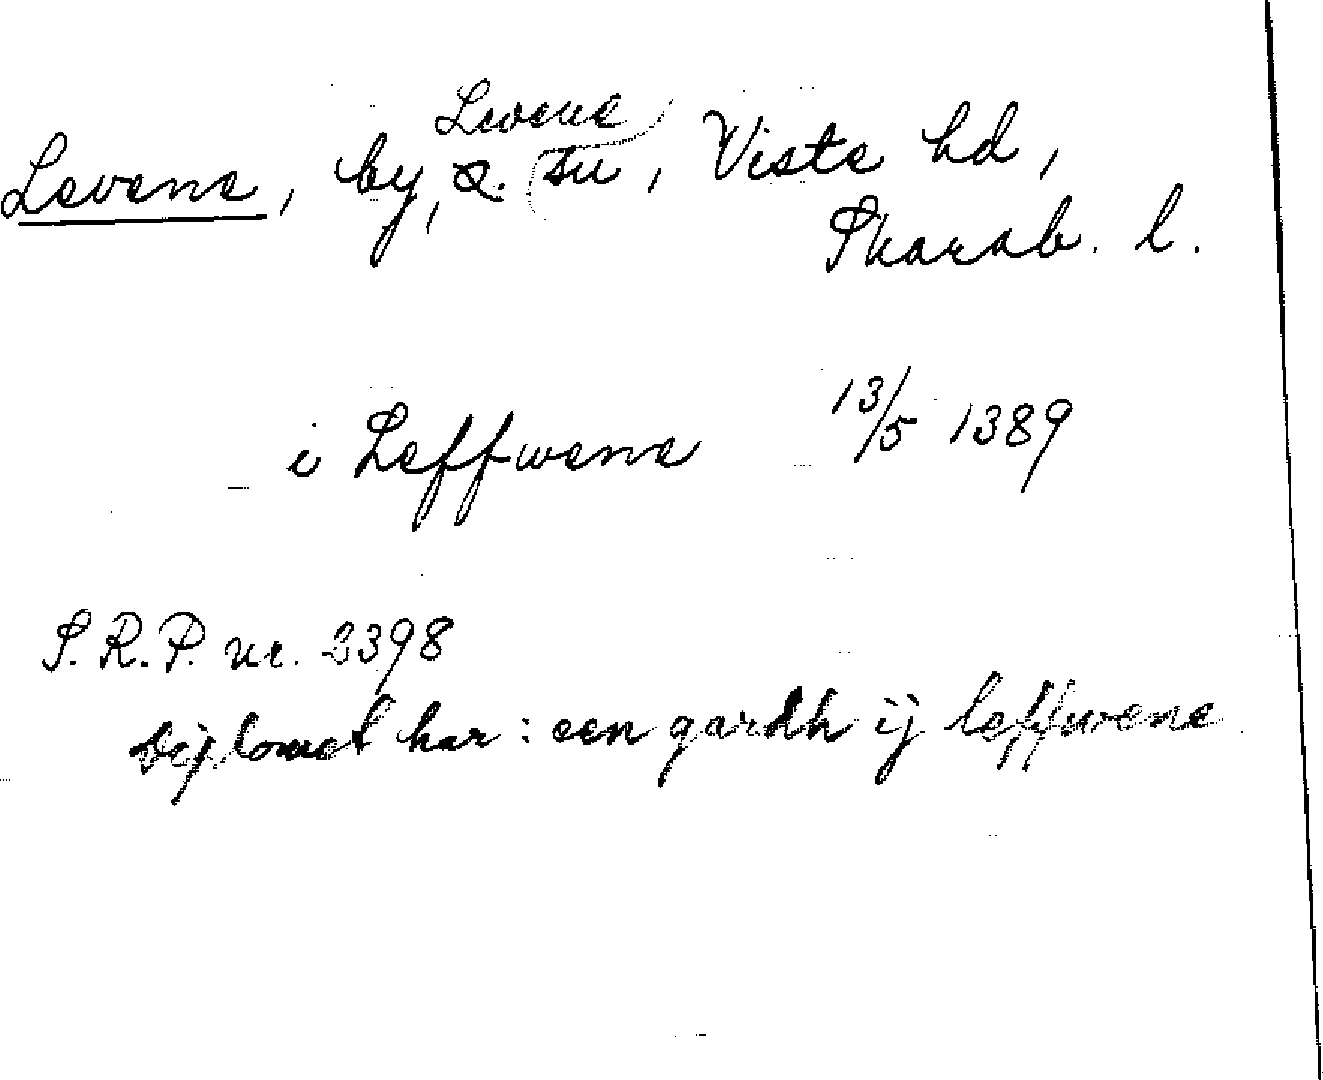 Levene, by, Levene sn, Viste hd,
Skarab. l.
i Leffwene 13/5 1389
S.R.P. nr. 2398
Diplomet har: een gardh ij leffwene